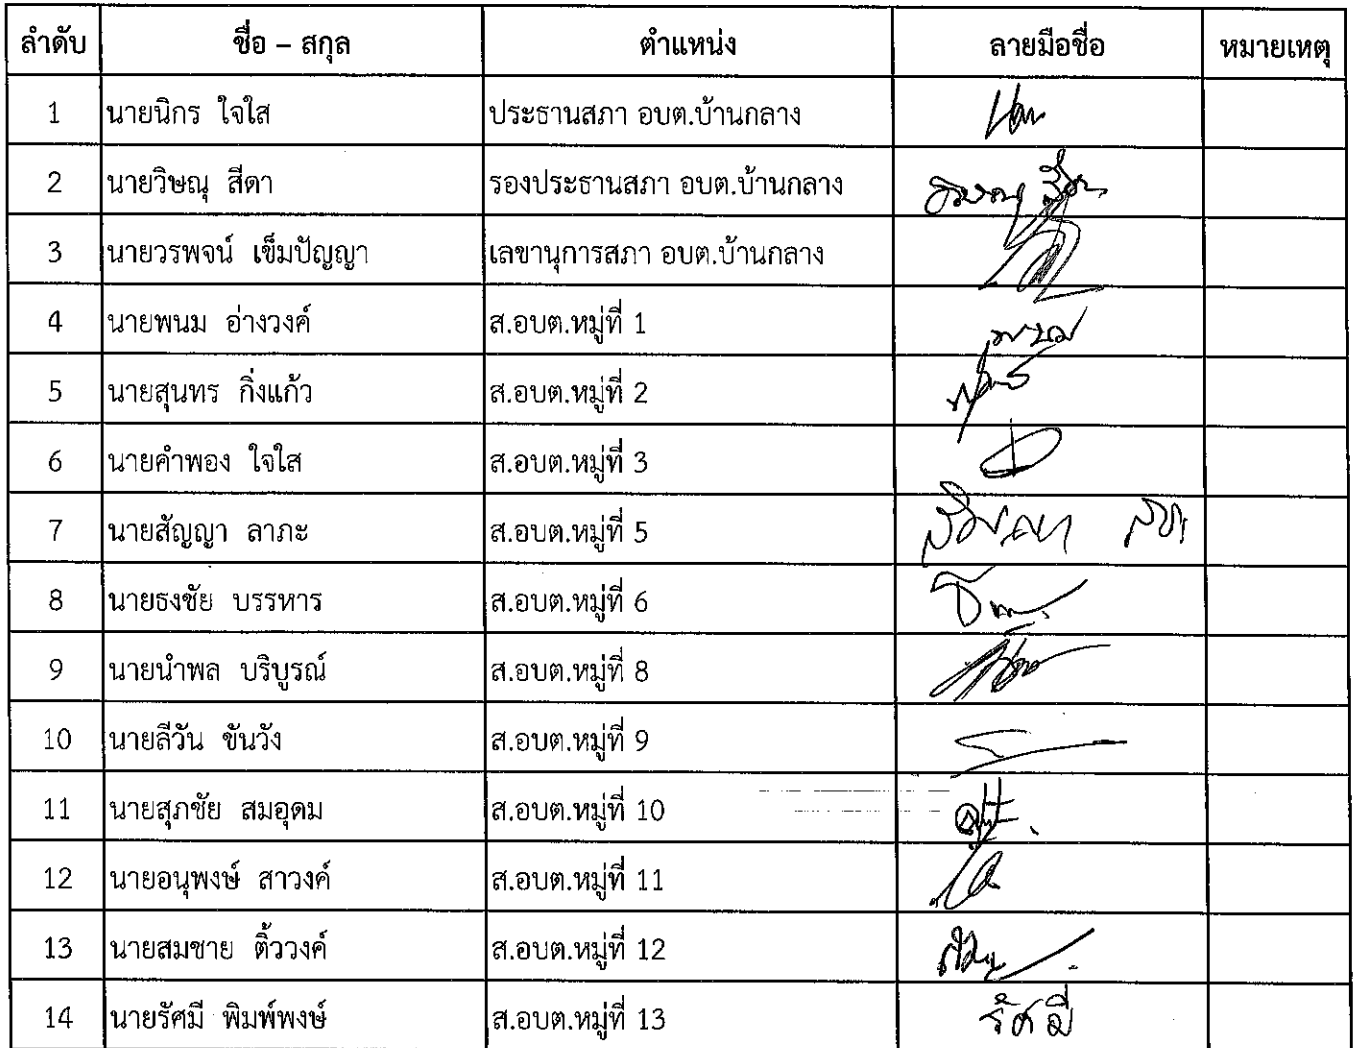 ลำดับ ชื่อ – สกุล ตำแหน่ง ลายมือชื่อ หมายเหตุ
1 นายนิกร ใจใส ประธานสภา อบต.บ้านกลาง
2 นายวิษณุ สีดา รองประธานสภา อบต.บ้านกลาง
3 นายวรพจน์ เข็มปัญญา เลขานุการสภา อบต.บ้านกลาง
4 นายพนม อ่างวงค์ ส.อบต.หมู่ที่ 1 พนม
5 นายสุนทร กิ่งแก้ว ส.อบต.หมู่ที่ 2
6 นายคำพอง ใจใส ส.อบต.หมู่ที่ 3
7 นายสัญญา ลาภะ ส.อบต.หมู่ที่ 5
8 นายธงชัย บรรหาร ส.อบต.หมู่ที่ 6
9 นายนำพล บริบูรณ์ ส.อบต.หมู่ที่ 8
10 นายลีวัน ขันวัง ส.อบต.หมู่ที่ 9
11 นายสุภชัย สมอุดม ส.อบต.หมู่ที่ 10
12 นายอนุพงษ์ สาวงค์ ส.อบต.หมู่ที่ 11
13 นายสมชาย ติ้ววงค์ ส.อบต.หมู่ที่ 12
14 นายรัศมี พิมพ์พงษ์ ส.อบต.หมู่ที่ 13 รัศมี